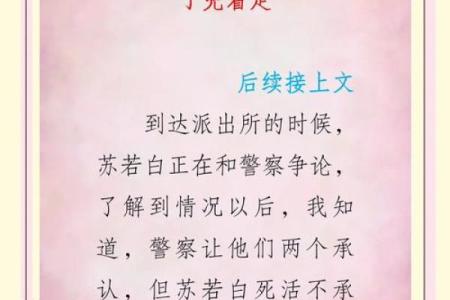 后续接上文
到达派出所的时候，
苏若白正在和警察争论，
了解到情况以后，我知
道，警察让他们两个承
认，但苏若白死活不承